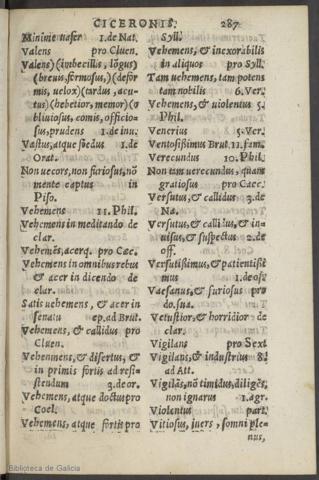 CICERONIS. 287
Minimè uafer 1.de Nat.
Valens pro Cluen.
Valens)(imbecillus, lõgus)
(breuis.formosus,)(defor
mis, uelox)(tardus, acu-
tus)(hebetior, memor)(o
bliuiosus, comis, officio-
sus, prudens 1.de inu.
Vastus, atque fœdus 1.de
Orat.
Non uecors, non furiosus, nõ
mente captus in
Piso.
Vehemens 11.Phil.
Vehemens in meditando de
clar.
Vehemẽs, acerq. pro Cæc.
Vehemens in omnibus rebus
& acer in dicendo de
clar.
Satis uehemens, & acer in
senatu ep.ad Brut.
Vehemens, & callidus pro
Cluen.
Vehemens, & disertus, &
in primis fortis ad resi-
stendum 3.de or.
Vehemens, atque doctus pro
Coel.
Vehemens, atque fortis pro
Syll.
Vehemens, & inexorabilis
in aliquos pro Syll.
Tam uehemens, tam potens
tam nobilis 6.Ver.
Vehemens, & uiolentus 5.
Phil.
Venerius 5.Ver.
Ventosissimus Brut.11.fam.
Verecundus 10.Phil.
Non tam uerecundus, quàm
gratiosus pro Cæc.
Versutus, & callidus 3.de
Na.
Versutus, & callidus, & in-
uisus, & suspectus 2.de
off.
Versutissimus, & patientissi
mus 1.de off
Væsanus, & furiosus pro
do.sua.
Vetustior, & horridior de
clar.
Vigilans pro Sext
Vigilans, & industrius 8.
ad Att.
Vigilãs, nõ timidus, diligẽs,
non ignarus 1.agr.
Violentus part.
Vitiosus, iners, somni ple-
nus,
Biblioteca de Galicia